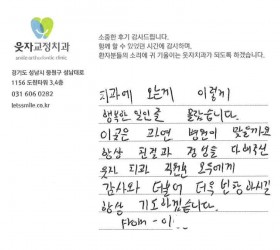 웃자교정치과
smile orthodontic clinic
경기도 성남시 중원구 성남대로
1156 도형타워 3,4층
031 606 0282
letssmile.co.kr
소중한 후기 감사드립니다.
함께 할 수 있었던 시간에 감사하며,
환자분들의 소리에 귀 기울이는 웃자치과가 되도록 하겠습니다.
치과에 오는게 이렇게
행복한 일인줄 몰랐습니다.
이곳은 과연 병원이 맞을까요
항상 친절과 정성을 다해주신
웃자 치과 직원분 모두에게
감사와 더불어 더욱 번창하시길
항상 기도하겠습니다.
From - 이...